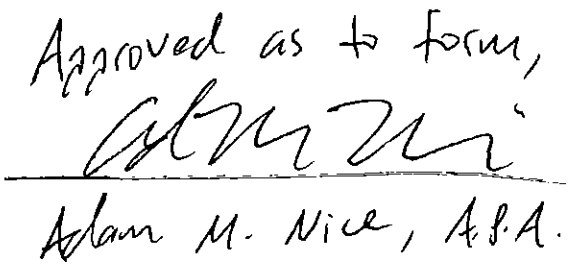 Approved as to form,
Adam M. Nice, A.P.A.